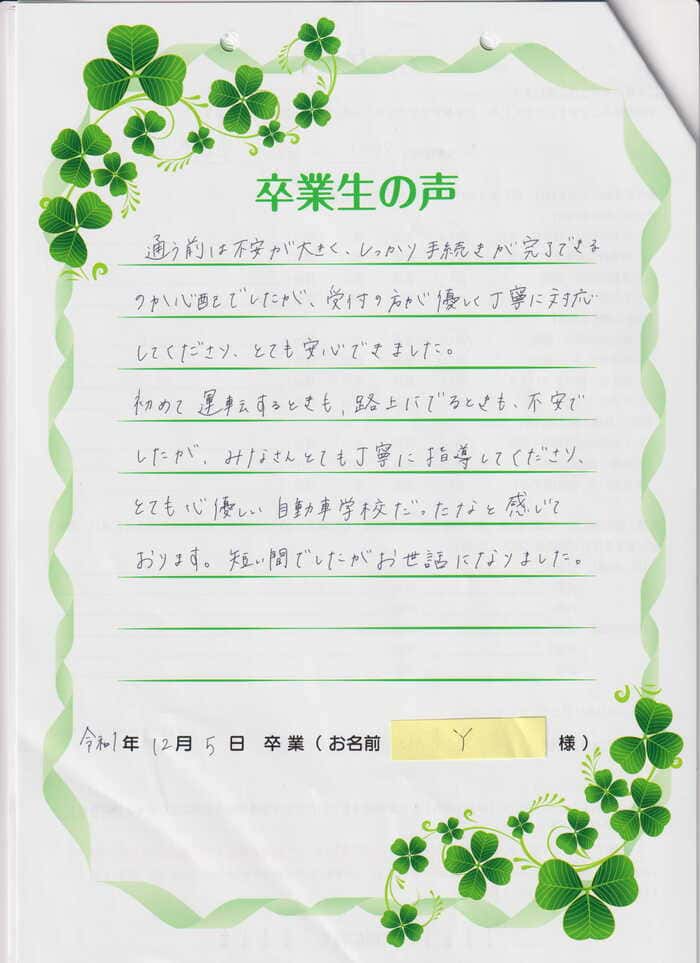 卒業生の声
通う前は不安が大きく、しっかり手続きが完了できる
のか心配でしたが、受付の方が優しく丁寧に対応
してくださり、とても安心できました。
初めて運転するときも、路上にでるときも、不安で
したが、みなさんとても丁寧に指導してくださり、
とても心優しい自動車学校だったなと感じて
おります。短い間でしたがお世話になりました。
令和1年 12月 5日 卒業(お名前 Y 様)